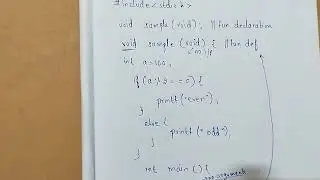 #include<stdio.h>
void sample(void); // fun declaration
void sample (void) { // fun def
int a=100;
if(a%2==0){
printf("even");
}
else {
printf("odd");
}
int main(){